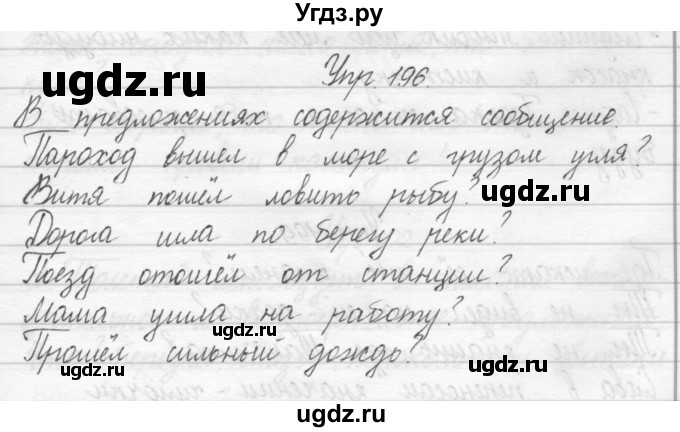 Угдз.ру
ugdz.ru
Упр. 196.
В предложениях содержится сообщение.
Пароход вышел в море с грузом угля?
Витя пошёл ловить рыбу?
ugdz.ru
Дорога шла по берегу реки?
Поезд отошёл от станции?
Мама ушла на работу?
ugdz.ru
Прошёл сильный дождь?
ugdz.ru
ugdz.ru